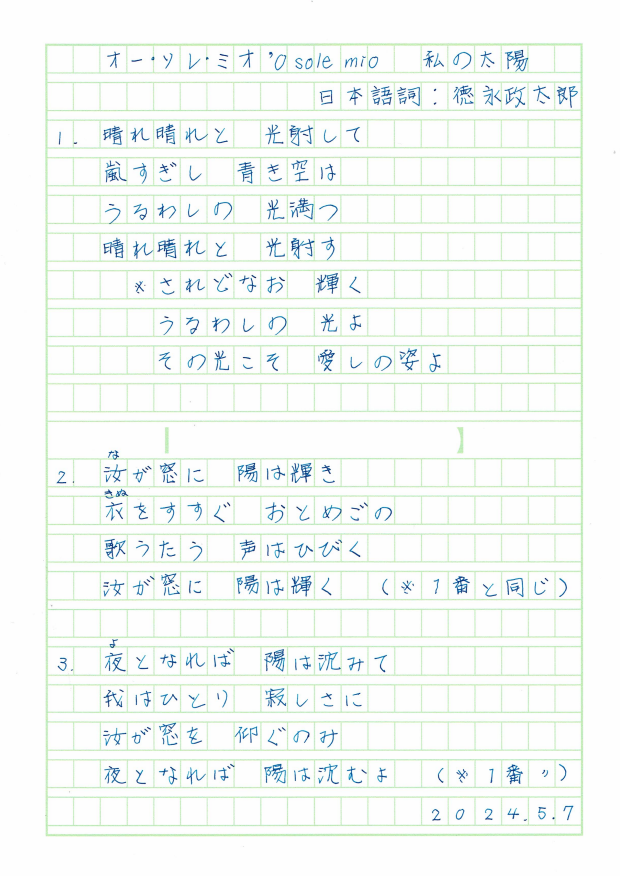 オー・ソレ・ミオ 'O sole mio 私の太陽
日本語詞：徳永政太郎
1. 晴れ晴れと 光射して
嵐すぎし 青き空は
うるわしの 光満つ
晴れ晴れと 光射す
※されどなお 輝く
うるわしの 光よ
その光こそ 愛しの姿よ
2. 汝が窓に 陽は輝き
な
衣をすすぐ おとめごの
きぬ
歌うたう 声はひびく
汝が窓に 陽は輝く （※1番と同じ）
3. 夜となれば 陽は沈みて
よ
我はひとり 寂しさに
汝が窓を 仰ぐのみ
夜となれば 陽は沈むよ （※1番〃）
2024.5.7